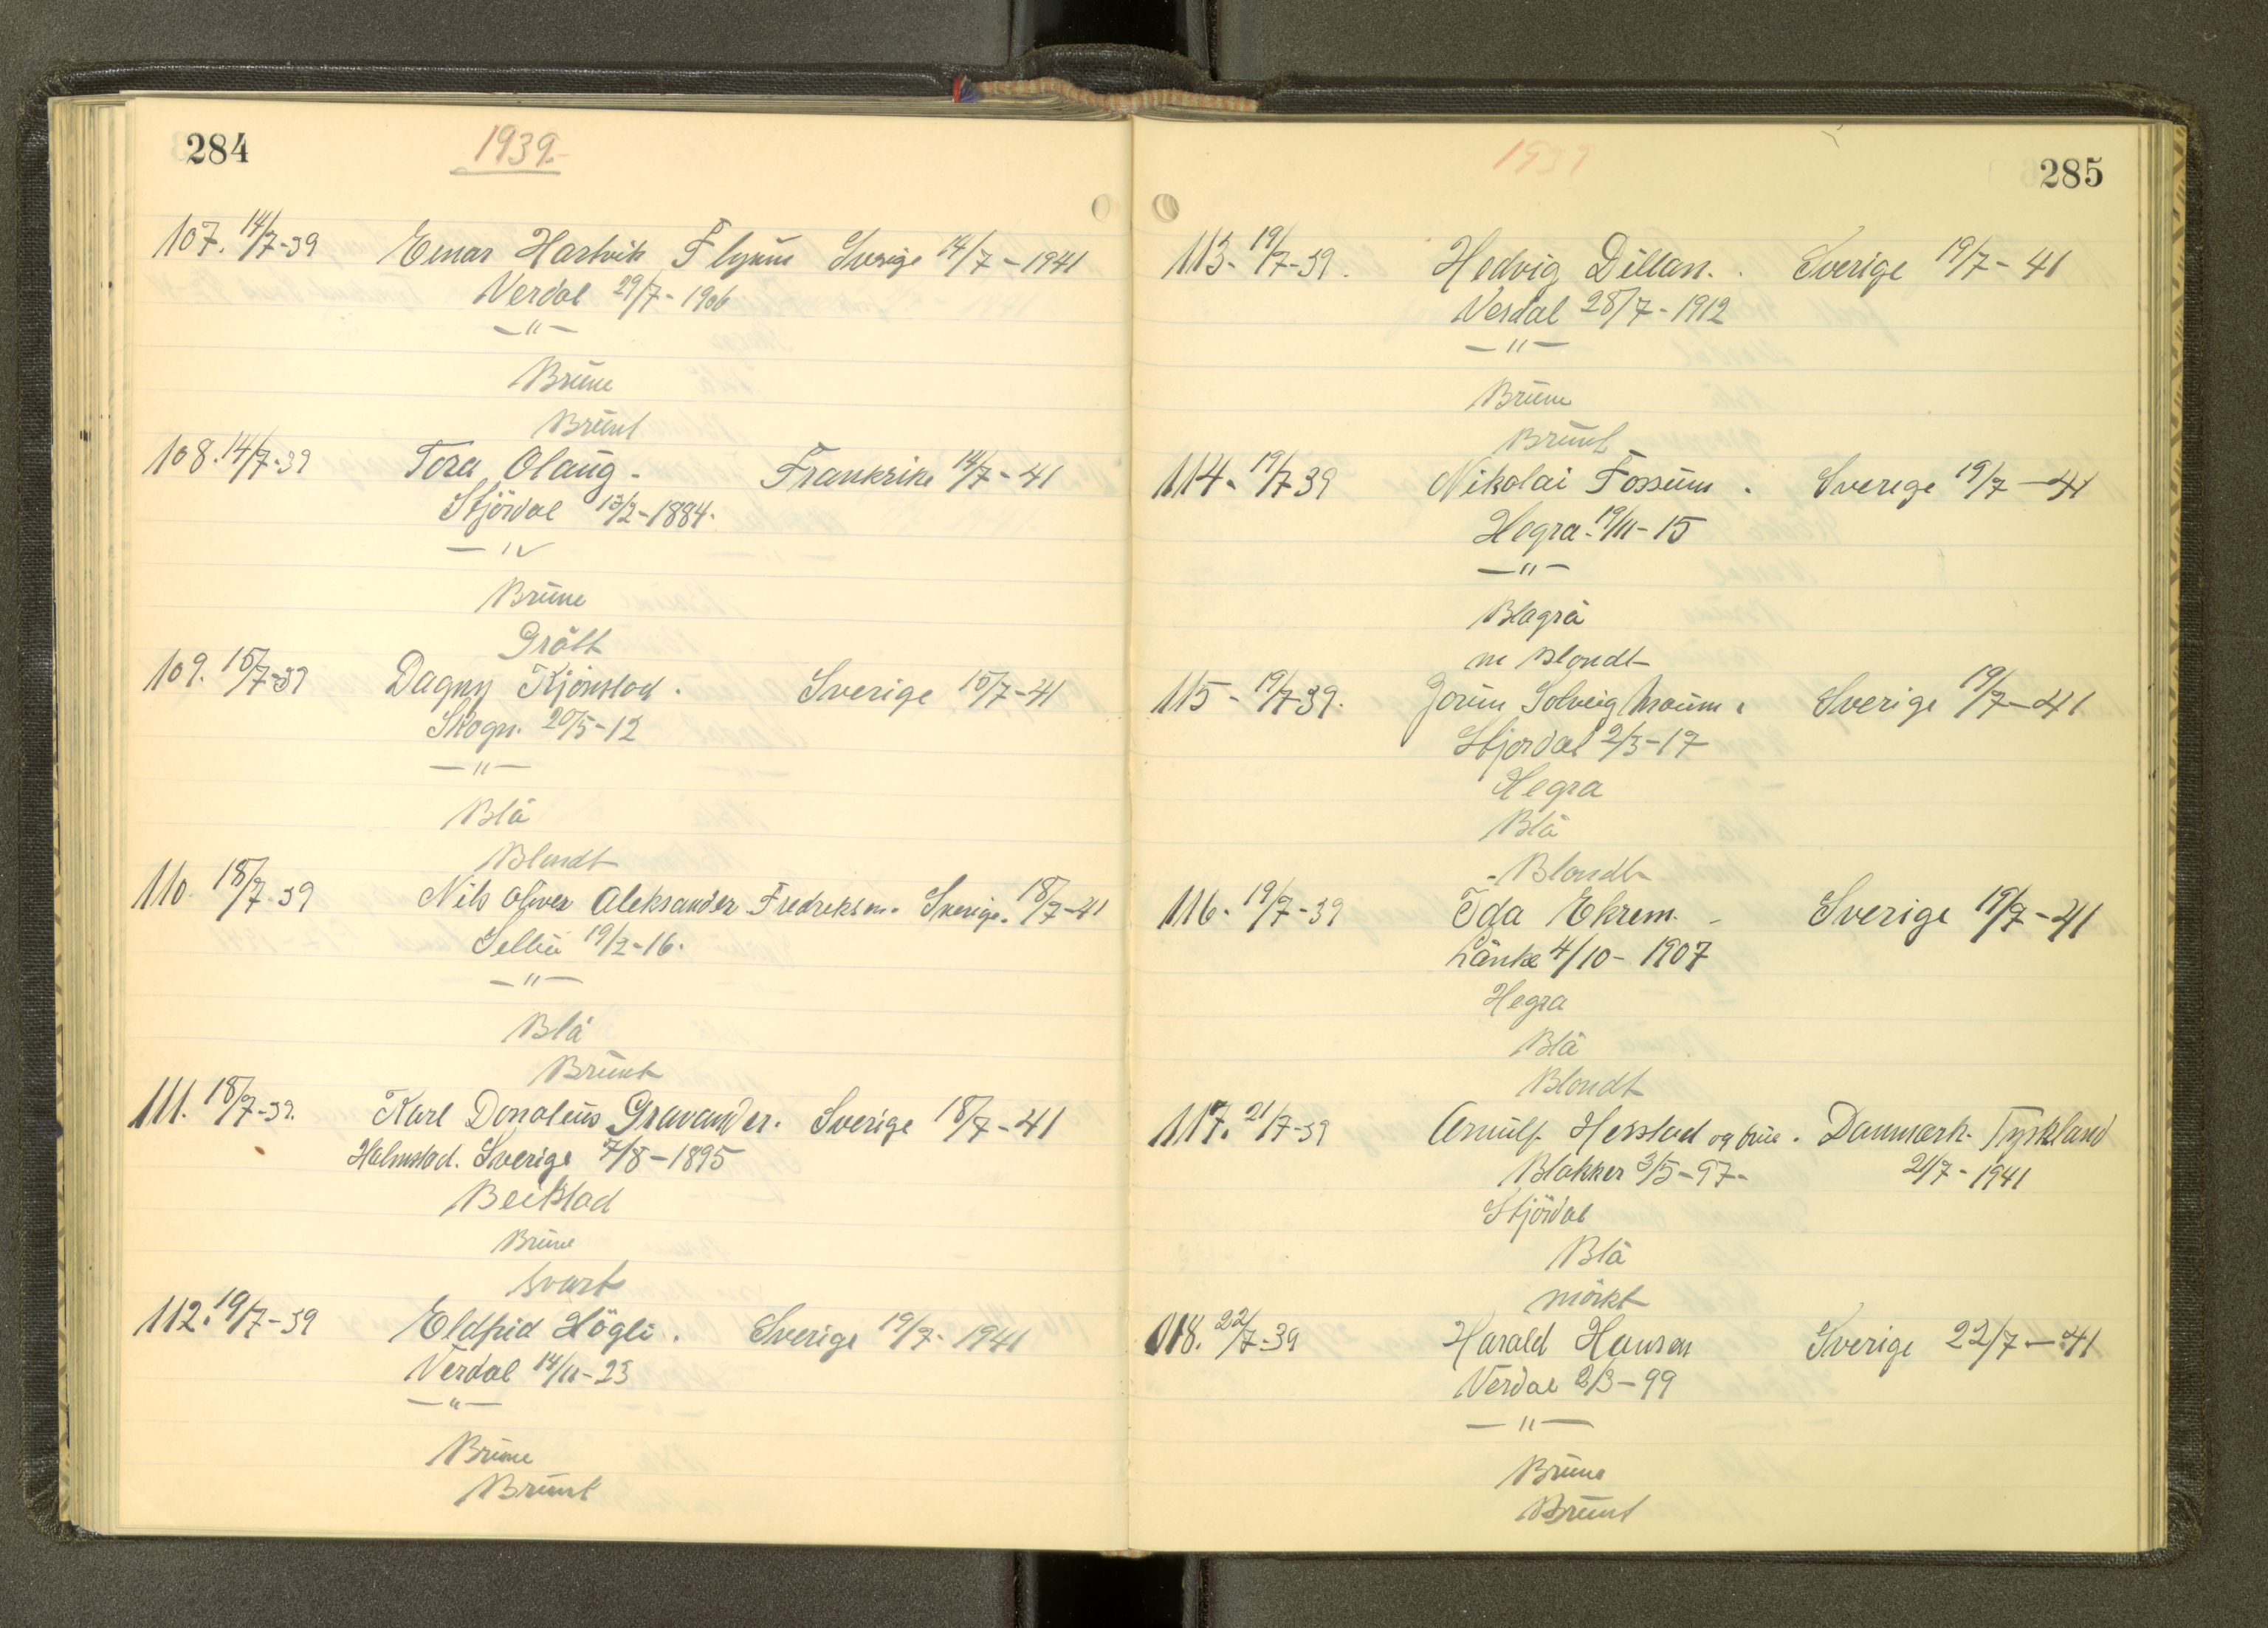 284
1939.-
107. 14/7-39 Einar Hartvik Flynn Sverige 14/7-1941
Verdal 29/7-1906
-"-
Brune
Brunt
108. 14/7-39 Tora Olaug. Frankrike 14/7-41
Stjördal 13/2-1884.
-"-
Brune
Grått
109. 15/7-39 Dagny Kjönstad. Sverige 15/7-41
Skogn. 20/5-12
-"-
Blå
Blondt
110. 18/7-39 Nils Oliver Aleksander Fredriksen. Sverige. 18/7-41
Selbu 19/2-16.
-"-
Blå
Brunt
111. 18/7-39. Karl Donoleus Gravander. Sverige 18/7-41
Halmstad. Sverige 7/8-1895
Beitstad
Brune
Svart
112. 19/7-39 Eldfrid Högli. Sverige 19/7-1941
Verdal 14/11-23
-"-
Brune
Brunt
285
1939
113. 19/7-39. Hedvig Dillan. Sverige 19/7-41
Verdal 28/7-1912
-"-
Brune
Brunt
114. 19/7-39 Nikolai Fossum. Sverige 19/7-41
Hegra. 19/11-15
-"-
Blagrå
m Blondt
115-19/7-39. Jorun Solveig Moum. Sverige 19/7-41
Stjordal 2/3-17
Hegra
Blå
Blondt
116. 19/7-39 Ida Ekrem. Sverige 19/7-41
Lånke 4/10-1907
Hegra
Blå
Blondt
117. 21/7-39 Arnulf Hesstad og frue. Danmark. Tyskland
Blakker 3/5-97- 21/7-1941
Stjördal
Blå
mörkt
118. 22/7-39 Harald Hansen Sverige 22/7-41
Verdal 2/3-99
-"-
Brune
Brunt